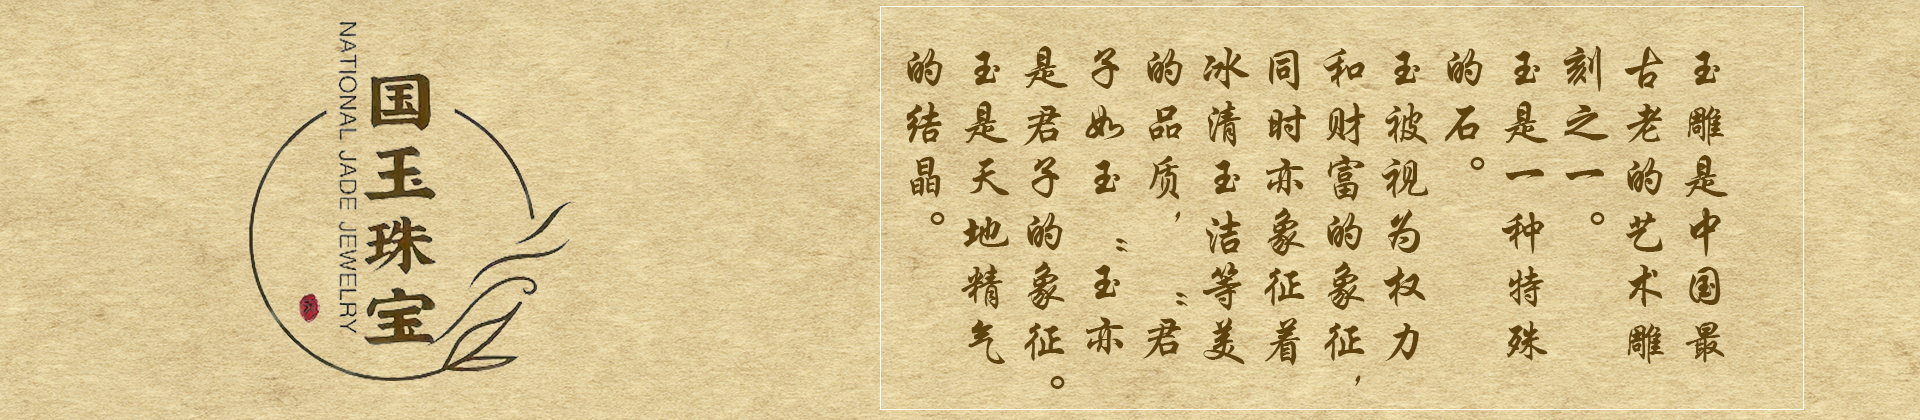 国玉珠宝
NATIONAL JADE JEWELRY
玉雕是中国最
古老的艺术雕
刻之一。
玉是一种特殊
的石。
玉被视为权力
和财富的象征，
同时亦象征着
冰清玉洁等美
的品质，“君
子如玉”玉亦
是君子的象征。
玉是天地精气
的结晶。